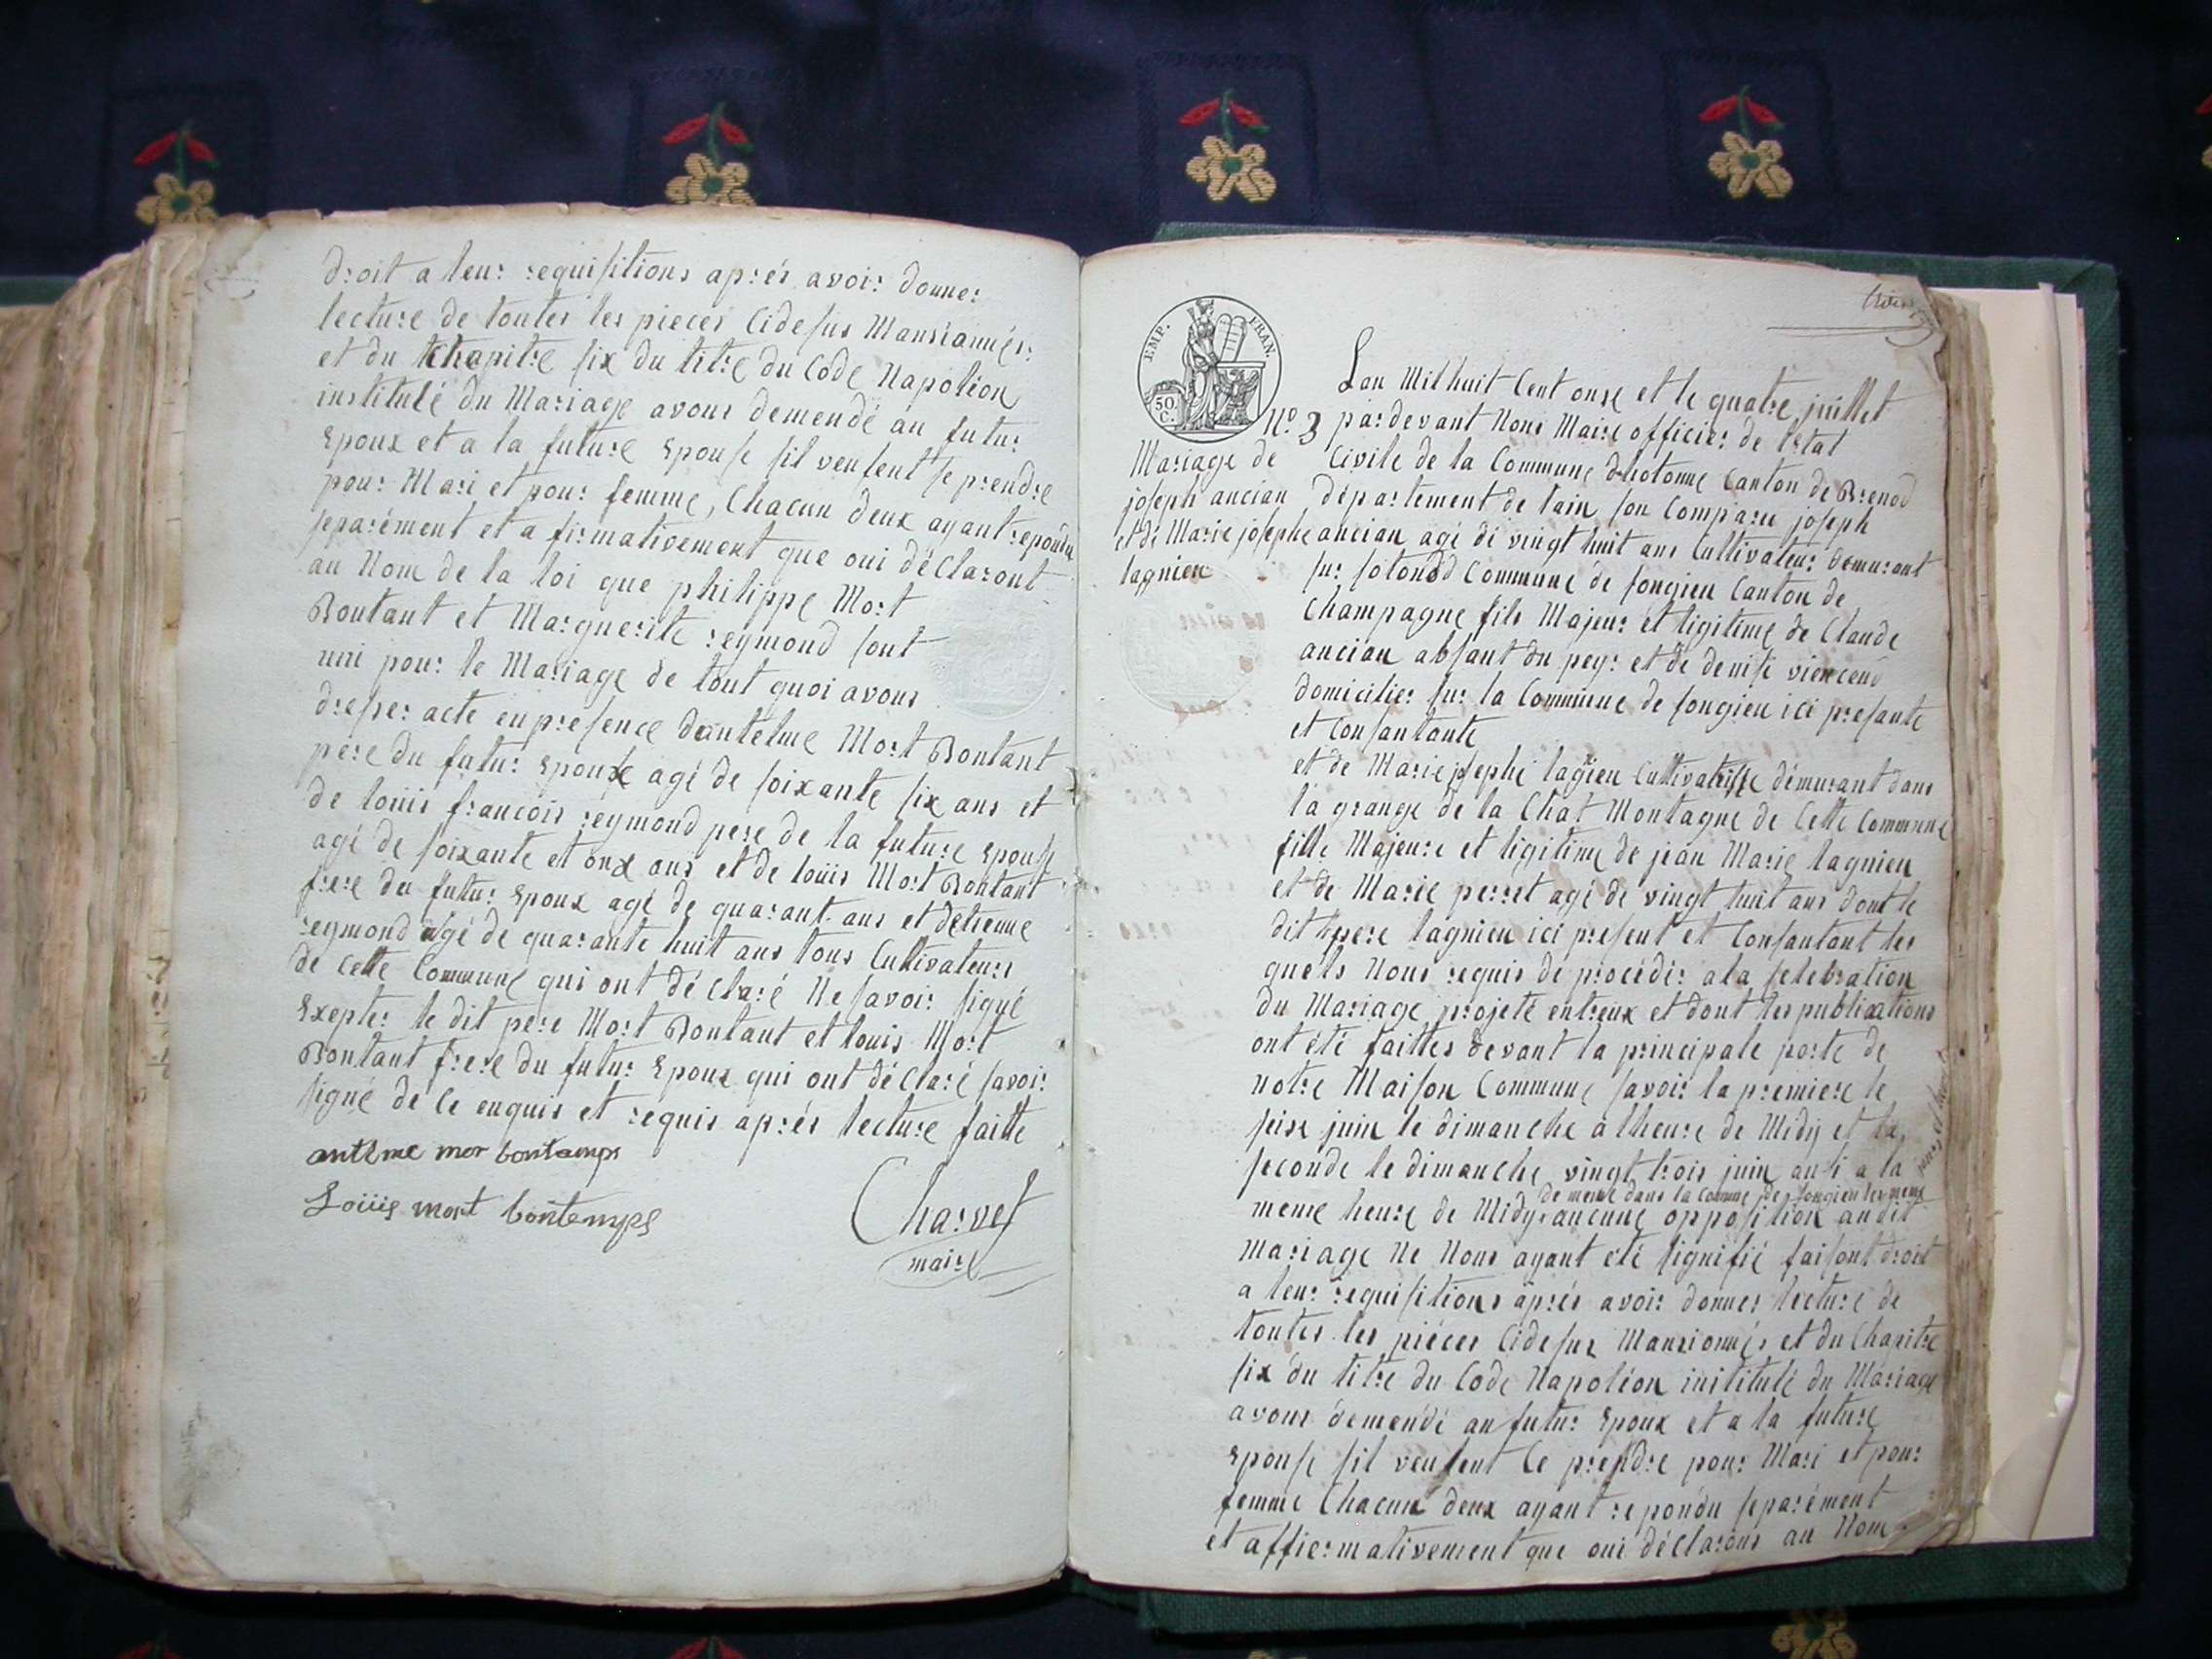 droit a leur requisitions aprés avoir donner
lecture de toutes les pieces Cidesus Mansiannés
et du Chapitre six du titre du Code Napoléon
institulé du Mariage avons demendé au futur
Epoux et a la future Epouse sil veulent se prendre
pour Mari et pour femme, Chacun deux ayant repondu
separément et a firmativement que oui déClaront
au Nom de la loi que philippe Mort
Bontant et Marguerite reymond sont
uni pour le Mariage de tout quoi avons
dreser acte en presence dantelme Mort Bontant
pere du futur Epoux agé de soixante six ans et
de loüis francois reymond pere de la future Epouse
agé de soixante et onx ans et de loüis Mort Bontant
frere du futur Epoux agé de quarant ans et detienne
reymond agé de quarante huit ans tous Cultivateurs
de Cette Commune qui ont déClaré Ne savoir signé
Exepter le dit pere Mort Bontant et louis Mort
Bontant frere du futur Epoux qui ont déClaré savoir
signé de Ce enquis et requis aprés lecture faitte
anteme mor bontamps
Loüis mort bontemps
Charvet
maire
EMP. FRAN.
50 C.
No. 3
Mariage de
joseph ancian
et de Marie josephe
lagnien
Lan Mil huit Cent onse et le quatre juillet
pardevant Nous Maire officier de letat
Civile de la Commune dhotonne Canton de Brenod
département de lain son Comparu joseph
ancian agé de vingt huit ans Cultivateur demurant
sur sotonod Commune de songieu Canton de
Champagne fils Majeur et ligitime de Claude
ancian absant du peyr et de denise viencend
domicilier sur la Commune de songieu ici presante
et Consantante
et de Marie josephe lagnien Cultivatrisse démurant dans
la grange de la Chat Montagne de Cette Commune
fille Majeure et ligitime de jean Marie lagnien
et de Marie perret agé de vingt huit ans dont le
dit pere lagnien ici present et Consantant les
quels Nous requis de procédir a la selebration
du Mariage projeté entreux et dont les publications
ont été faittes devant la principale porte de
notre Maison Commune savoir la premiere le
seise juin le dimanche a lheure de Midy et la
seconde le dimanche vingt trois juin ausi a la
de meme dans la Comune de songieu les meme
jours et heure
meme heure de Midy aucune opposition audit
mariage Ne Nous ayant eté signifié faisont droit
a leur requisitions aprés avoir donner lecture de
toutes les piéces Cidesus Mansionnés et du Chapitre
six du titre du Code Napoléon inititulé du Mariage
avons demendé au futur Epoux et a la future
Epouse sil veulent Ce prendre pour Mari et pour
femme Chacun deux ayant repondu separément
et affiermativement que oui déClarons au Nom